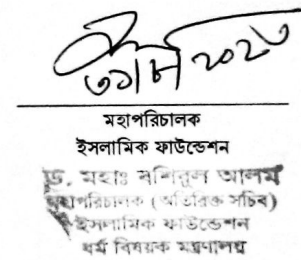 ৩১/৮/২০২৩
মহাপরিচালক
ইসলামিক ফাউন্ডেশন
ড. মহাঃ বশিরুল আলম
মহাপরিচালক (অতিরিক্ত সচিব)
ইসলামিক ফাউন্ডেশন
ধর্ম বিষয়ক মন্ত্রণালয়